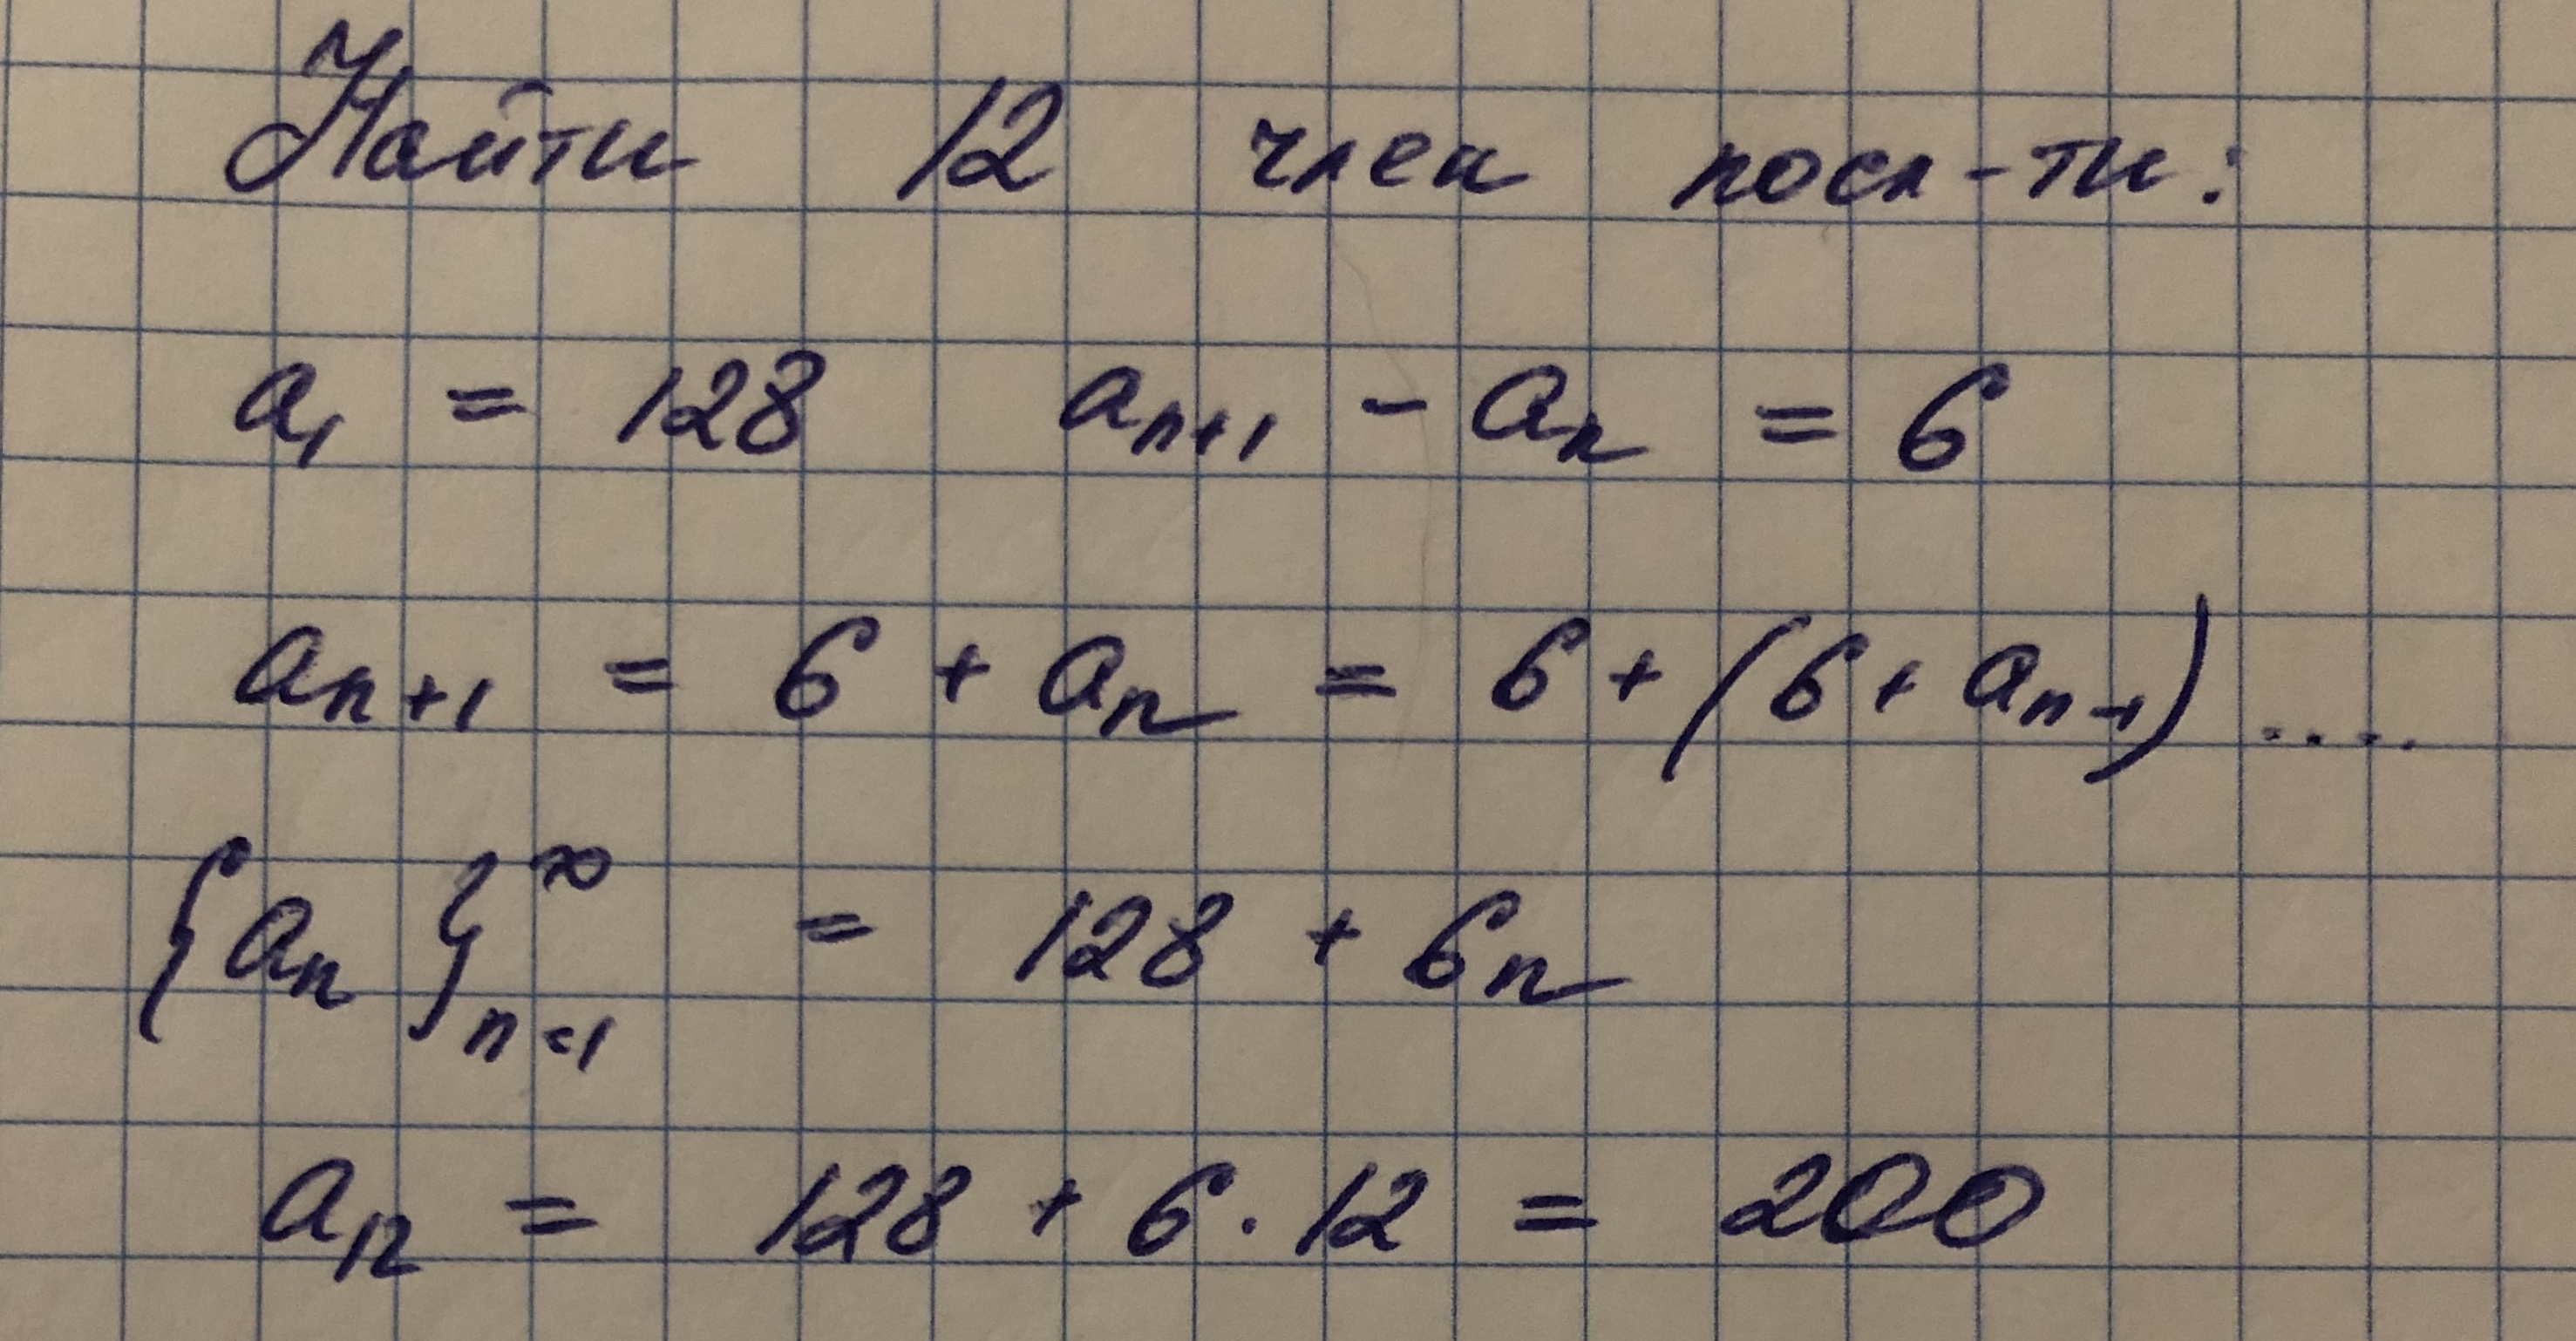 Найти 12 член посл-ти:
a₁ = 128 aₙ₊₁ - aₙ = 6
aₙ₊₁ = 6 + aₙ = 6 + (6 + aₙ₋₁) ....
{aₙ}ₙ₌₁^∞ = 128 + 6n
a₁₂ = 128 + 6 · 12 = 200